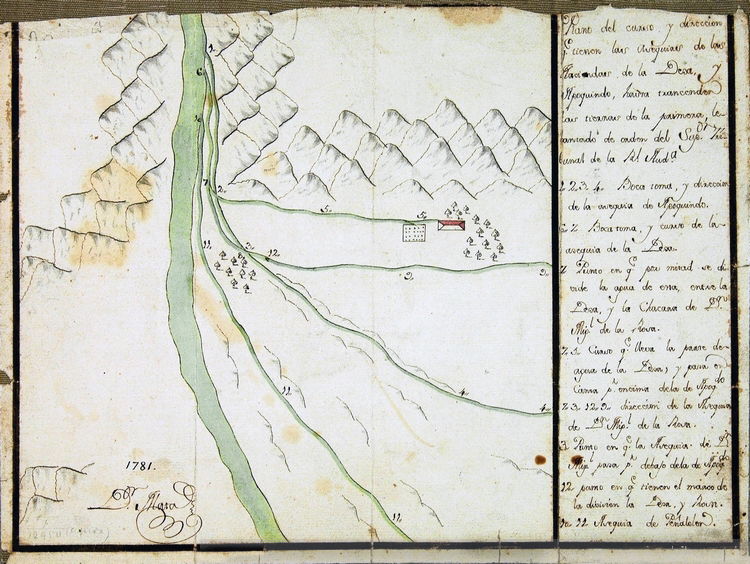 Plano del curso, y direccion
q.e tienen las Aseguias de las
Haciendas de la Desa, y
Apoquindo, hasta transcender
las tierras de la primera, le
vantado de orden del Sup.or Tri
bunal de la R.l Aud.a
1 2 3 4 Boca toma, y direccion
de la aseguia de Apoquindo.
6 7 Boca toma, y curso de la
aseguia de la Desa.
7 Punto en q.e por mitad se di
vide la agua de esta, entre la
Desa, y la Chacara de D.n
Mig.l de la
7 5 Curso q.e lleva la parte de
agua de la Desa; y pasa en
Canoa p.r encima de la de Apoq.do
7 3 12 9 direccion de la Aseguia
de D.n Mig.l de la
3 Punto en q.e la Aseguia de D.n
Mig.l pasa p.r debajo de la de Apoq.do
12 punto en q.e tienen el marco de
la division la Desa, y
10 11 Aseguia de Peñalolen.
1
6
10
7
2
5
5
11
3
12
9
9
4
4
11
11
1781.